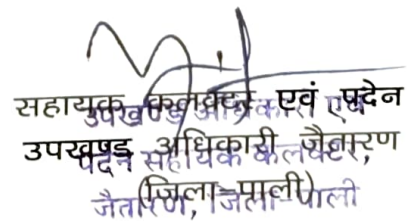 सहायक कलक्टर एवं पदेन
उपखण्ड अधिकारी एवं
उपखण्ड अधिकारी जैतारण
पदेन सहायक कलक्टर,
(जिला-पाली)
जैतारण, जिला-पाली